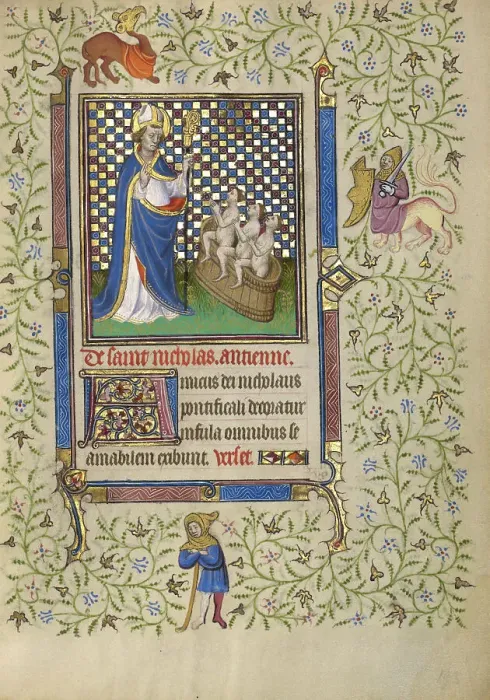 De saint nicholas. antienne.
Amicus dei nicholaus
pontificali decoratur
infula omnibus se
amabilem exibuit. Verset.